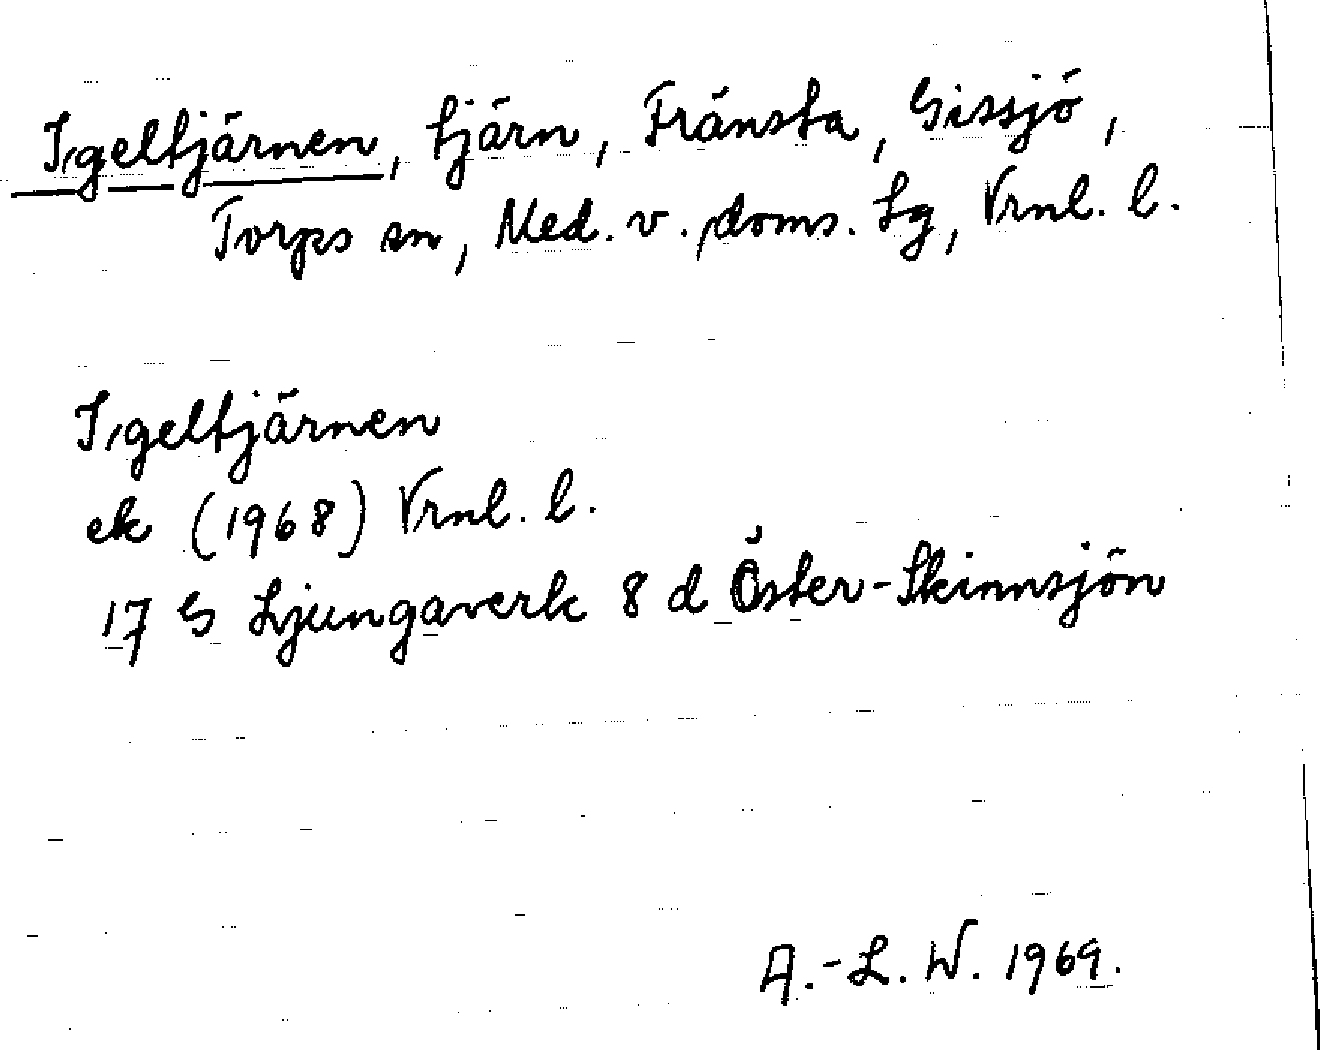 Igeltjärnen, tjärn, Fränsta, Gissjö,
Torps sn, Med. v. doms. lg, Vrnl. l.
Igeltjärnen
ek (1968) Vrnl. l.
17 G Ljungaverk 8 d Öster-Skinnsjön
A.-L. W. 1969.